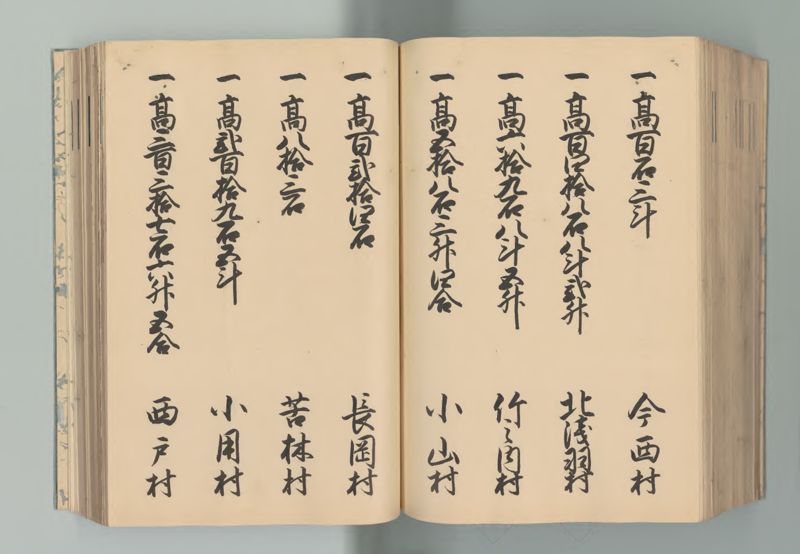 一高百石三斗 今西村
一高百四拾八石八斗弐升 北浅羽村
一高六拾九石八斗五升 竹之内村
一高五拾八石三升四合 小山村
一高百弐拾四石 長岡村
一高八拾三石 苦林村
一高弐百拾九石五斗 小用村
一高三百三拾七石六升五合 西戸村